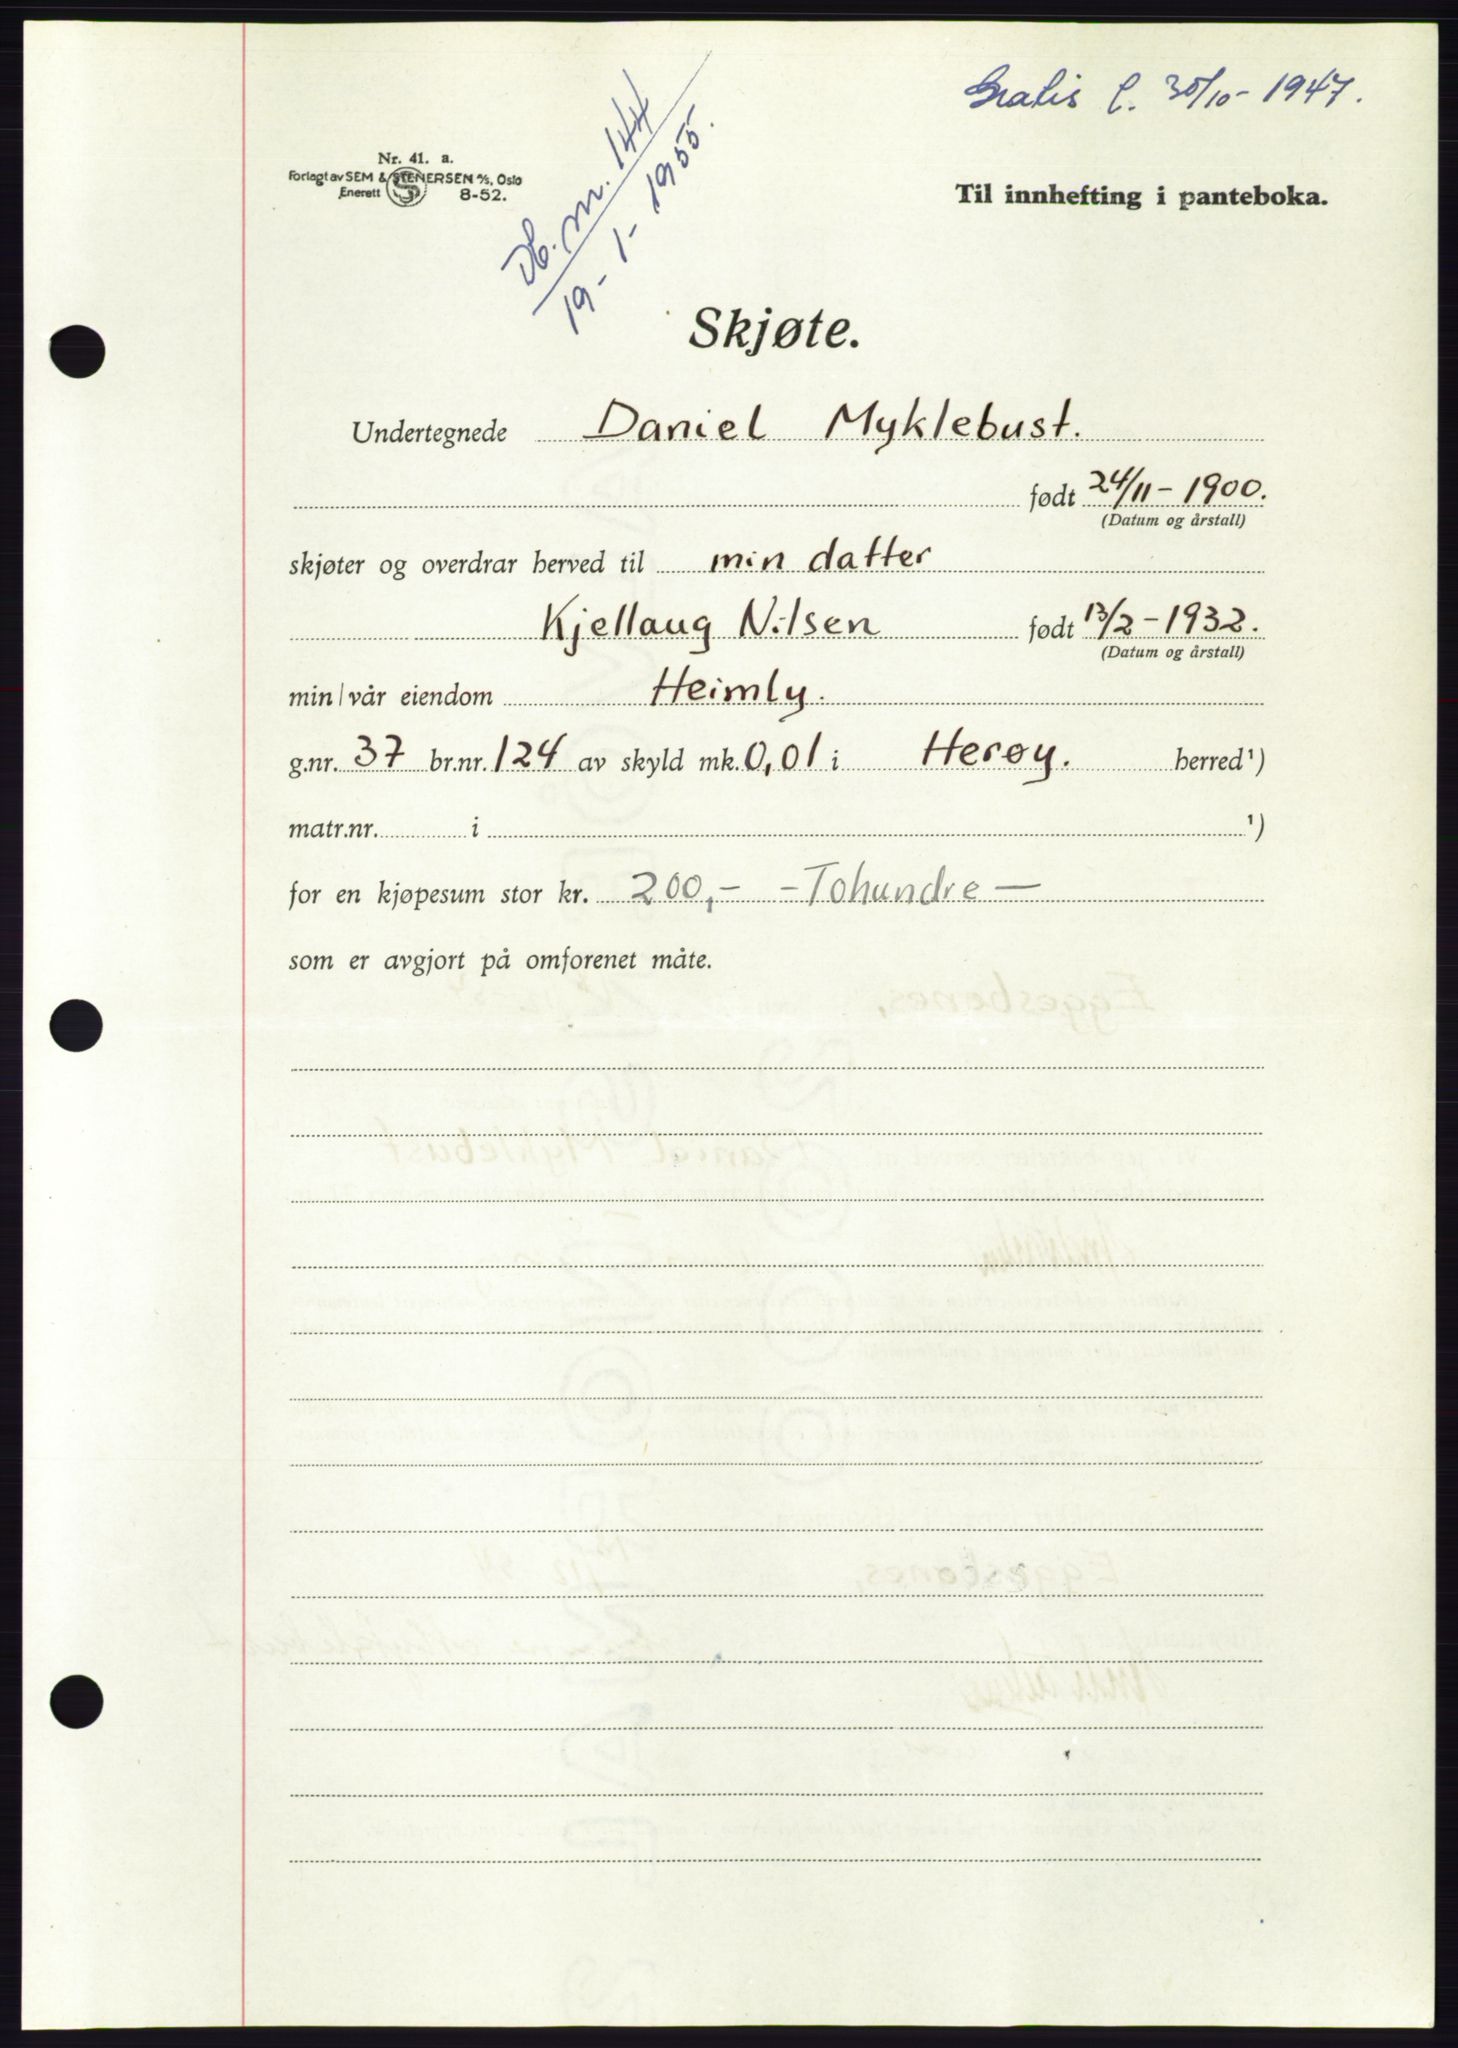 Gratis l. 30/10- 1947.
Nr. 41. a.
Forlagt av SEM & STENERSEN A/S, Oslo
Enerett S 8-52.
Db. nr. 144
19-1-1955.
Til innhefting i panteboka.
Skjøte.
Undertegnede Daniel Myklebust.
født 24/11-1900.
(Datum og årstall)
skjøter og overdrar herved til min datter
Kjellaug Nilsen født 13/2-1932.
(Datum og årstall)
min/vår eiendom Heimly.
g.nr. 37 br.nr. 124 av skyld mk. 0,01 i Herøy. herred¹)
matr.nr. i ¹)
for en kjøpesum stor kr. 200,- -Tohundre-
som er avgjort på omforenet måte.
Eggesbønes,
Daniel Myklebust
Eggesbønes,